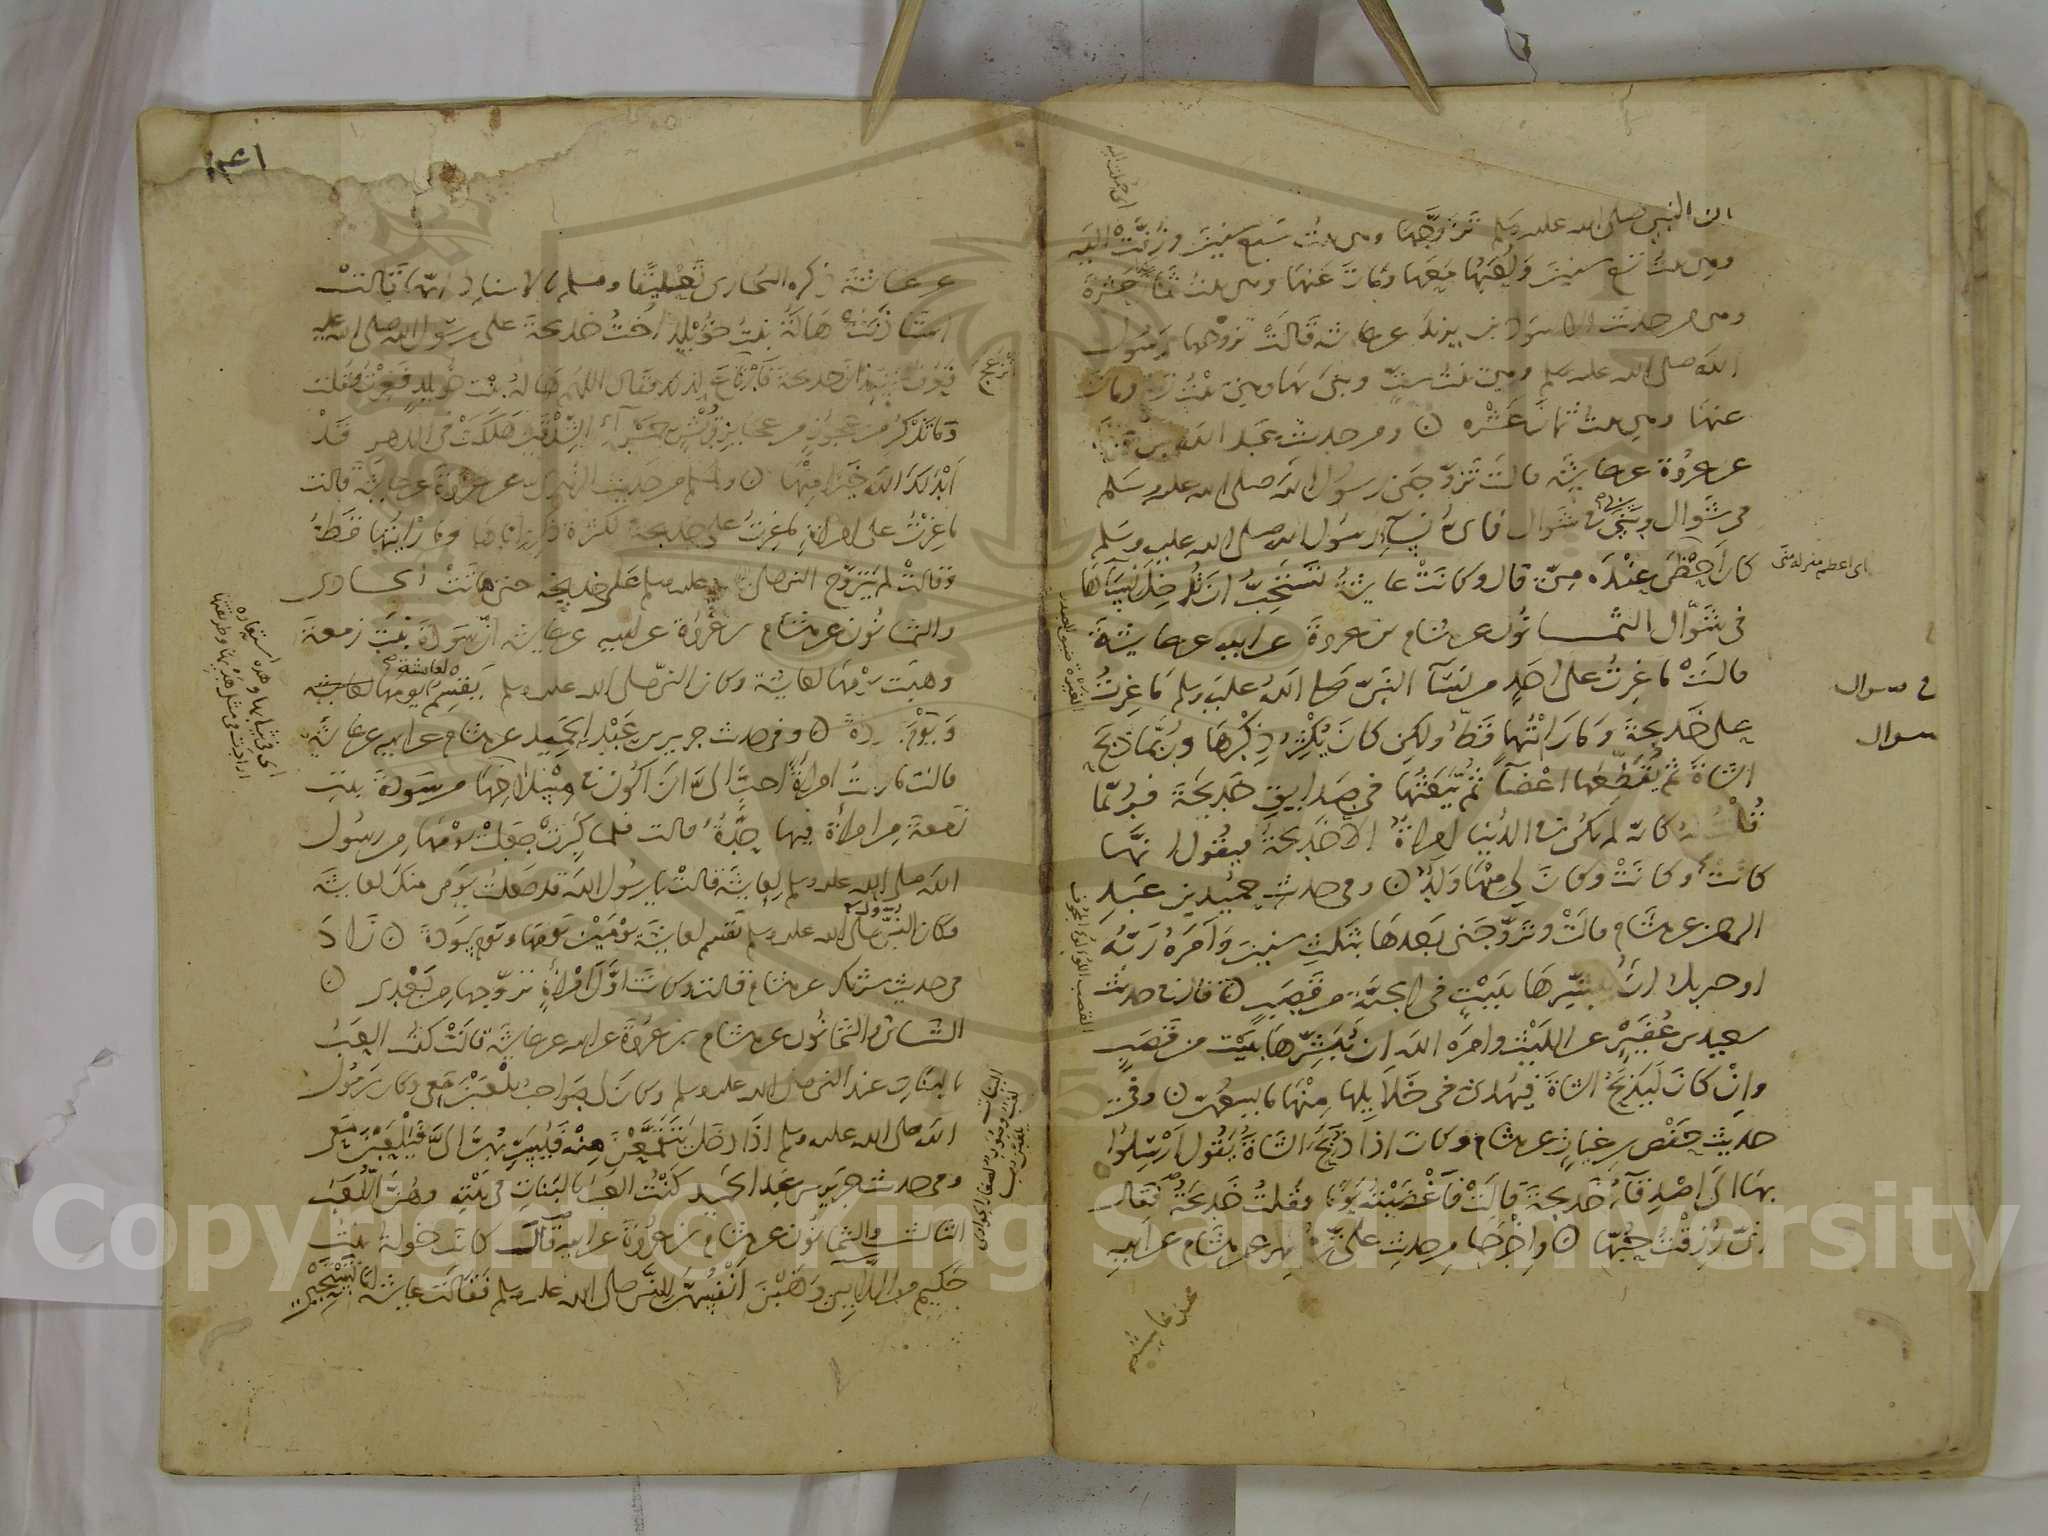 ان النبي صلى الله عليه وسلم تزوجها وهي بنت سبع سنين وزفت اليه
وهي بنت تسع سنين ولعبها معها ومات عنها وهي بنت ثمان عشرة
ومن حديث الاسود بن يزيد عن عائشة قالت تزوجها رسول
الله صلى الله عليه وسلم وهي بنت ست وبنى بها وهي بنت تسع ومات
عنها وهي بنت ثمان عشره ومن حديث عبد الله بن عروة
عن عروة عن عائشة قالت تزوجني رسول الله صلى الله عليه وسلم
في شوال وبنى بي في شوال فاى نسآء رسول الله صلى الله عليه وسلم
كان احظى عنده مني قال وكانت عايشة تستحب ان تدخل نسآءها
اى اعظم منزلة مني
في شوال الثمانون عن هشام بن عروة عن ابيه عن عايشة
قالت ما غرت على احد من نسآء النبي صلى الله عليه وسلم ما غرت
على خديجة وما رايتها قط ولكن كان يكثر ذكرها وربما ذبح
الشاة ثم يقطعها اعضآ ثم يبعثها في صدايق خديجة فربما
قلت له كانه لم يكن في الدنيا امراة الا خديجة فيقول انها
كانت وكانت وكان لي منها ولد وفي حديث حميد بن عبد
الرحمن عن هشام قالت وتزوجني بعدها بثلث سنين وامره ربه
او جبريل ان يبشرها ببيت في الجنة من قصب قال في حديث
سعيد بن عفير عن الليث وامره الله ان يبشرها ببيت من قصب
وان كان ليذبح الشاة فيهدى في خلايلها منها ما يسعهن وفي
حديث حفص بن غياث عن هشام وكان اذا ذبح الشاة يقول ارسلوا
بها الى اصدقآء خديجة قالت فاغضبته يوما فقلت خديجة فقال
اني رزقت حبها واخرجا من حديث علي بن مسهر عن هشام عن ابيه
عن عايشة
عن عائشة ذكره البخارى تعليقا ومسلم بالاسناد انها قالت
استاذنت هالة بنت خويلد اخت خديجة على رسول الله صلى الله عليه
فعرف استيذان خديجة فارتاع لذلك فقال اللهم هالة بنت خويلد فغرت فقلت
وما تذكر من عجوز من عجايز قريش حمرآء الشدقين هلكت في الدهر قد
ابدلك الله خيرا منها ولمسلم من حديث الزهري عن عروة عن عايشة قالت
ما غرت على امراة ما غرت على خديجة لكثرة ذكره اياها وما رايتها قط
وقالت لم يتزوج النبي صلى الله عليه وسلم على خديجة حتى ماتت الحادى
والثمانون عن هشام بن عروة عن ابيه عن عايشة ان سودة بنت زمعة
وهبت يومها لعايشة وكان النبي صلى الله عليه وسلم يقسم لعائشة يومها
ويوم سودة وفي حديث جرير بن عبد الحميد عن هشام عن ابيه عن عايشة
قالت ما رايت امراة احب الي ان اكون في مسلاخها من سودة بنت
زمعة من امراة فيها حدة قالت فلما كبرت جعلت يومها من رسول
الله صلى الله عليه وسلم لعايشة قالت يا رسول الله قد جعلت يومي منك لعايشة
فكان النبي صلى الله عليه وسلم يقسم لعايشة يومين يومها ويوم سودة زاد
في حديث شريك عن هشام قالت وكانت اول امراة تزوجها من بعدى
الثاني والثمانون عن هشام بن عروة عن ابيه عن عايشة قالت كنت العب
بالبنات عند النبي صلى الله عليه وسلم وكان لي صواحب يلعبن معي وكان رسول
الله صلى الله عليه وسلم اذا دخل يتقمعن منه فيسربهن الي فيلعبن معي
وفي حديث جرير بن عبد الحميد كنت العب بالبنات في بيته وهن اللعب
الثالث والثمانون عن هشام بن عروة عن ابيه قال كانت خولة بنت
حكيم من اللايي وهبن انفسهن للنبي صلى الله عليه وسلم فقالت عايشة اما تستحيي